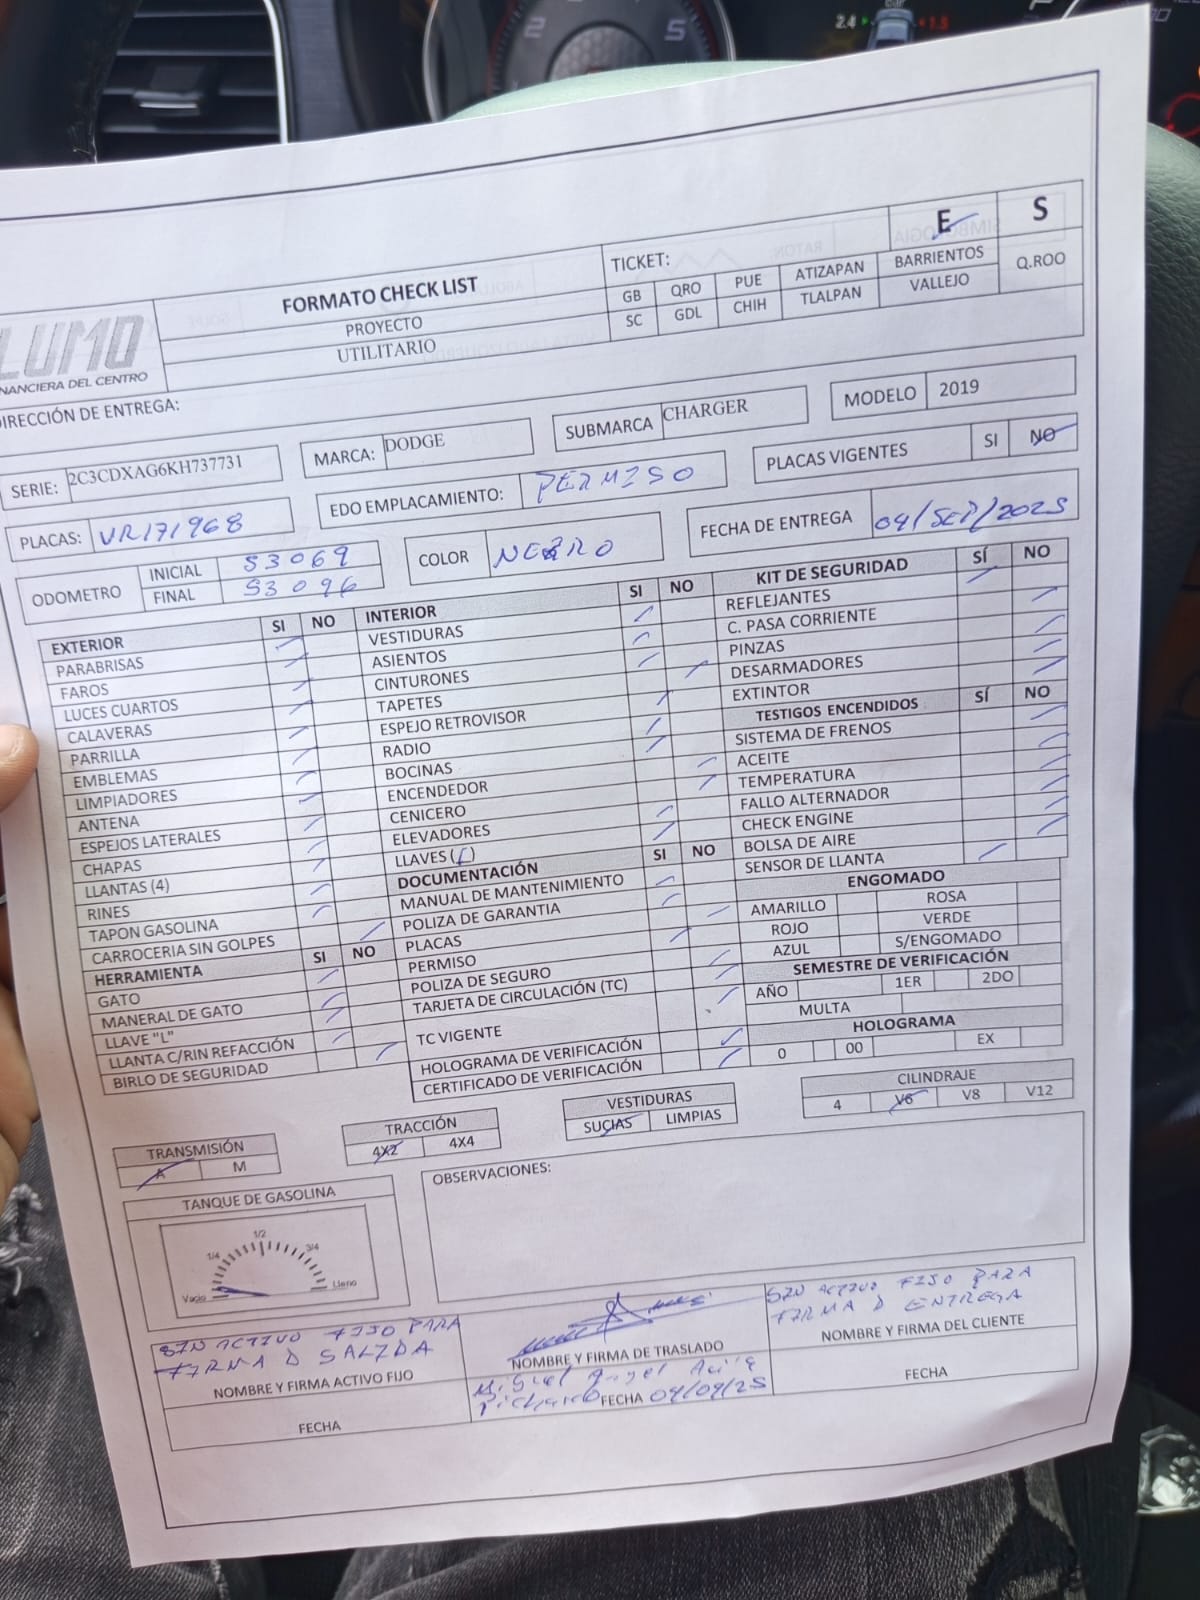 2
5
2.4
1.8
LUMO
NANCIERA DEL CENTRO
FORMATO CHECK LIST
PROYECTO
UTILITARIO
TICKET:
E
S
GB QRO PUE ATIZAPAN BARRIENTOS Q.ROO
SC GDL CHIH TLALPAN VALLEJO
DIRECCIÓN DE ENTREGA:
SERIE: 2C3CDXAG6KH737731
MARCA: DODGE
SUBMARCA CHARGER
MODELO 2019
PLACAS: UR171968
EDO EMPLACAMIENTO: PERMISO
PLACAS VIGENTES SI NO
ODOMETRO INICIAL 53069
FINAL 53096
COLOR NEGRO
FECHA DE ENTREGA 04/SEP/2025
EXTERIOR SI NO
PARABRISAS
FAROS
LUCES CUARTOS
CALAVERAS
PARRILLA
EMBLEMAS
LIMPIADORES
ANTENA
ESPEJOS LATERALES
CHAPAS
LLANTAS (4)
RINES
TAPON GASOLINA
CARROCERIA SIN GOLPES
HERRAMIENTA SI NO
GATO
MANERAL DE GATO
LLAVE "L"
LLANTA C/RIN REFACCIÓN
BIRLO DE SEGURIDAD
INTERIOR SI NO
VESTIDURAS
ASIENTOS
CINTURONES
TAPETES
ESPEJO RETROVISOR
RADIO
BOCINAS
ENCENDEDOR
CENICERO
ELEVADORES
LLAVES ( )
DOCUMENTACIÓN SI NO
MANUAL DE MANTENIMIENTO
POLIZA DE GARANTIA
PLACAS
PERMISO
POLIZA DE SEGURO
TARJETA DE CIRCULACIÓN (TC)
TC VIGENTE
HOLOGRAMA DE VERIFICACIÓN
CERTIFICADO DE VERIFICACIÓN
KIT DE SEGURIDAD SÍ NO
REFLEJANTES
C. PASA CORRIENTE
PINZAS
DESARMADORES
EXTINTOR
TESTIGOS ENCENDIDOS SÍ NO
SISTEMA DE FRENOS
ACEITE
TEMPERATURA
FALLO ALTERNADOR
CHECK ENGINE
BOLSA DE AIRE
SENSOR DE LLANTA
ENGOMADO
AMARILLO ROSA
ROJO VERDE
AZUL S/ENGOMADO
SEMESTRE DE VERIFICACIÓN
AÑO 1ER 2DO
MULTA
HOLOGRAMA
0 00 EX
TRANSMISIÓN
A M
TRACCIÓN
4X2 4X4
VESTIDURAS
SUCIAS LIMPIAS
CILINDRAJE
4 V6 V8 V12
TANQUE DE GASOLINA
Vacio 1/4 1/2 3/4 Lleno
OBSERVACIONES:
SIN ACTIVO FIJO PARA
FIRMA D SALIDA
NOMBRE Y FIRMA ACTIVO FIJO
FECHA
NOMBRE Y FIRMA DE TRASLADO
Miguel Angel
FECHA 04/09/25
SIN ACTIVO FIJO PARA
FIRMA D ENTREGA
NOMBRE Y FIRMA DEL CLIENTE
FECHA